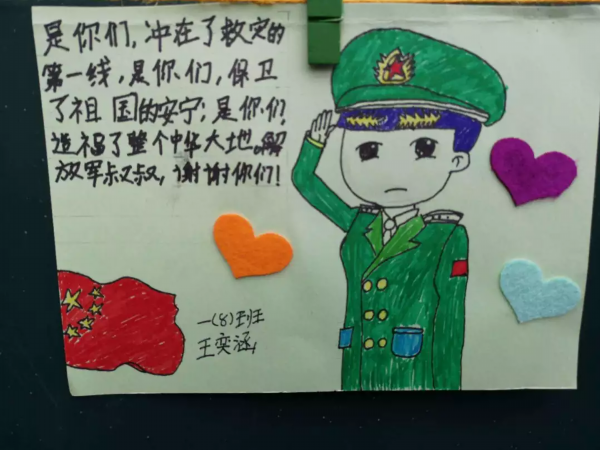 是你们，冲在了救灾的
第一线，是你们，保卫
了祖国的安宁；是你们
造福了整个中华大地。解
放军叔叔，谢谢你们！
一(8)班
王奕涵